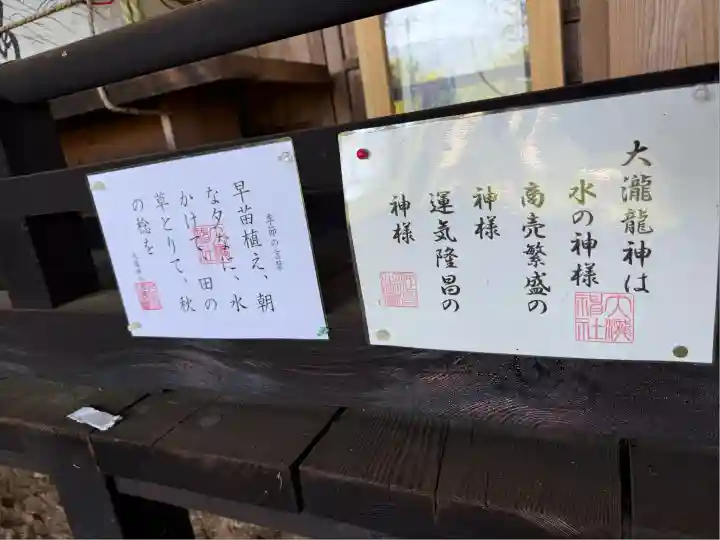 大瀧龍神は
水の神様
商売繁盛の
神様
運気隆昌の
神様
大瀧
神社
季節の言葉
早苗植え、朝
な夕なに、水
かけて、田の
草とりて、秋
の稔を